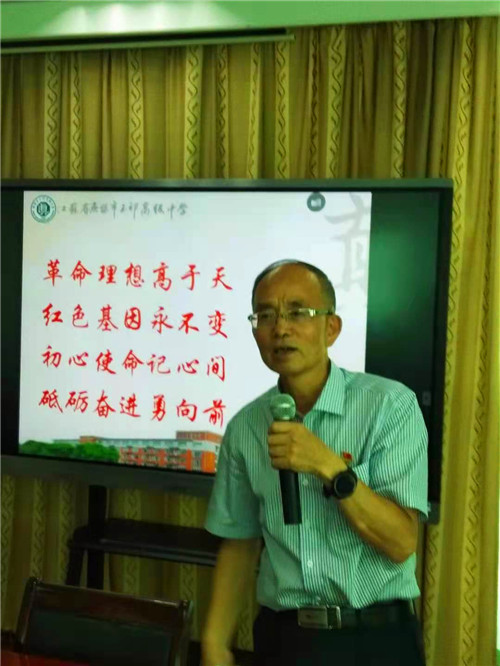 江苏省无锡市玉祁高级中学
革命理想高于天
红色基因永不变
初心使命记心间
砥砺奋进勇向前